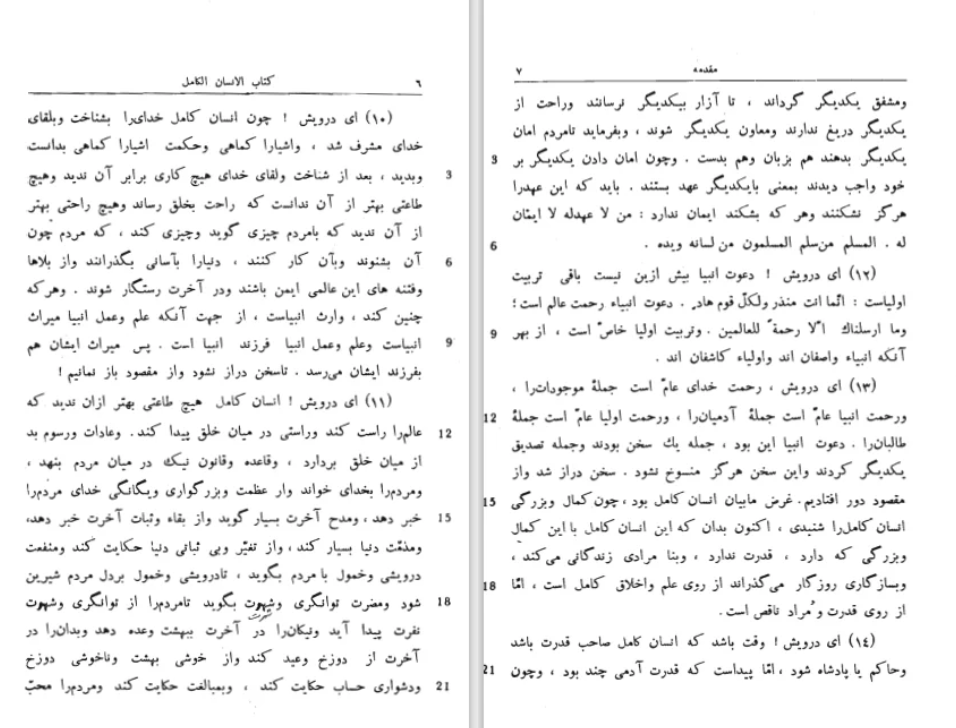 ٦ کتاب الانسان الکامل
(۱۰) ای درویش ! چون انسان کامل خدای‌را بشناخت وبلقای
خدای مشرف شد ، واشیارا کماهی وحکمت اشیارا کماهی بدانست
3 وبدید ، بعد از شناخت ولقای خدای هیچ کاری برابر آن ندید وهیچ
طاعتی بهتر از آن ندانست که راحت بخلق رساند وهیچ راحتی بهتر
از آن ندید که بامردم چیزی گوید وچیزی کند ، که مردم چون
6 آن بشنوند وبآن کار کنند ، دنیارا بآسانی بگذرانند واز بلاها
وفتنه های این عالمی ایمن باشند ودر آخرت رستگار شوند . وهرکه
چنین کند ، وارث انبیاست ، از جهت آنکه علم وعمل انبیا میراث
9 انبیاست وعلم وعمل انبیا فرزند انبیا است . پس میراث ایشان هم
بفرزند ایشان می‌رسد . تاسخن دراز نشود واز مقصود باز نمانیم !
(۱۱) ای درویش ! انسان کامل هیچ طاعتی بهتر ازان ندید که
12 عالم‌را راست کند وراستی در میان خلق پیدا کند . وعادات ورسوم بد
از میان خلق بردارد ، وقاعده وقانون نیک در میان مردم بنهد ،
ومردم‌را بخدای خواند واز عظمت وبزرگواری ویگانگی خدای مردم‌را
15 خبر دهد ، ومدح آخرت بسیار گوید واز بقاء وثبات آخرت خبر دهد،
ومذمّت دنیا بسیار کند ، واز تغیّر وبی ثباتی دنیا حکایت کند ومنفعت
درویشی وخمول با مردم بگوید ، تادرویشی وخمول بردل مردم شیرین
18 شود ومضرت توانگری وشهوت بگوید تامردم‌را از توانگری وشهوت
نفرت پیدا آید ونیکان‌را در آخرت ببهشت وعده دهد وبدان‌را در
آخرت از دوزخ وعید کند واز خوشی بهشت وناخوشی دوزخ
21 ودشواری حساب حکایت کند ، وبمبالغت حکایت کند ومردم‌را محبّ
مقدمه ۷
ومشفق یکدیگر گرداند ، تا آزار بیکدیگر نرسانند وراحت از
یکدیگر دریغ ندارند ومعاون یکدیگر شوند ، وبفرماید تامردم امان
3 یکدیگر بدهند هم بزبان وهم بدست . وچون امان دادن یکدیگر بر
خود واجب دیدند بمعنی بایکدیگر عهد بستند . باید که این عهدرا
هرگز نشکنند وهر که بشکند ایمان ندارد : من لا عهدله لا ایمان
6 له . المسلم من‌سلم المسلمون من لسانه ویده .
(۱۲) ای درویش ! دعوت انبیا بیش ازین نیست باقی تربیت
اولیاست : انّما انت منذر ولکلّ قوم هادٍ . دعوت انبیاء رحمت عالم است؛
9 وما ارسلناك الّا رحمةً للعالمین . وتربیت اولیا خاصّ است ، از بهر
آنکه انبیاء واصفان اند واولیاء کاشفان اند .
(۱۳) ای درویش ، رحمت خدای عامّ است جملهٔ موجودات‌را ،
12 ورحمت انبیا عامّ است جملهٔ آدمیان‌را ، ورحمت اولیا عامّ است جملهٔ
طالبان‌را . دعوت انبیا این بود ، جمله یك سخن بودند وجمله تصدیق
یکدیگر کردند واین سخن هرگز منسوخ نشود . سخن دراز شد واز
15 مقصود دور افتادیم. غرض مابیان انسان کامل بود ، چون کمال وبزرگی
انسان کامل‌را شنیدی ، اکنون بدان که این انسان کامل با این کمال
وبزرگی که دارد ، قدرت ندارد ، وبنا مرادی زندگانی می‌کند ،
18 وبسازگاری روزگار می‌گذراند از روی علم واخلاق کامل است ، امّا
از روی قدرت ومُراد ناقص است .
(۱٤) ای درویش ! وقت باشد که انسان کامل صاحب قدرت باشد
21 وحاکم یا پادشاه شود ، امّا پیداست که قدرت آدمی چند بود ، وچون